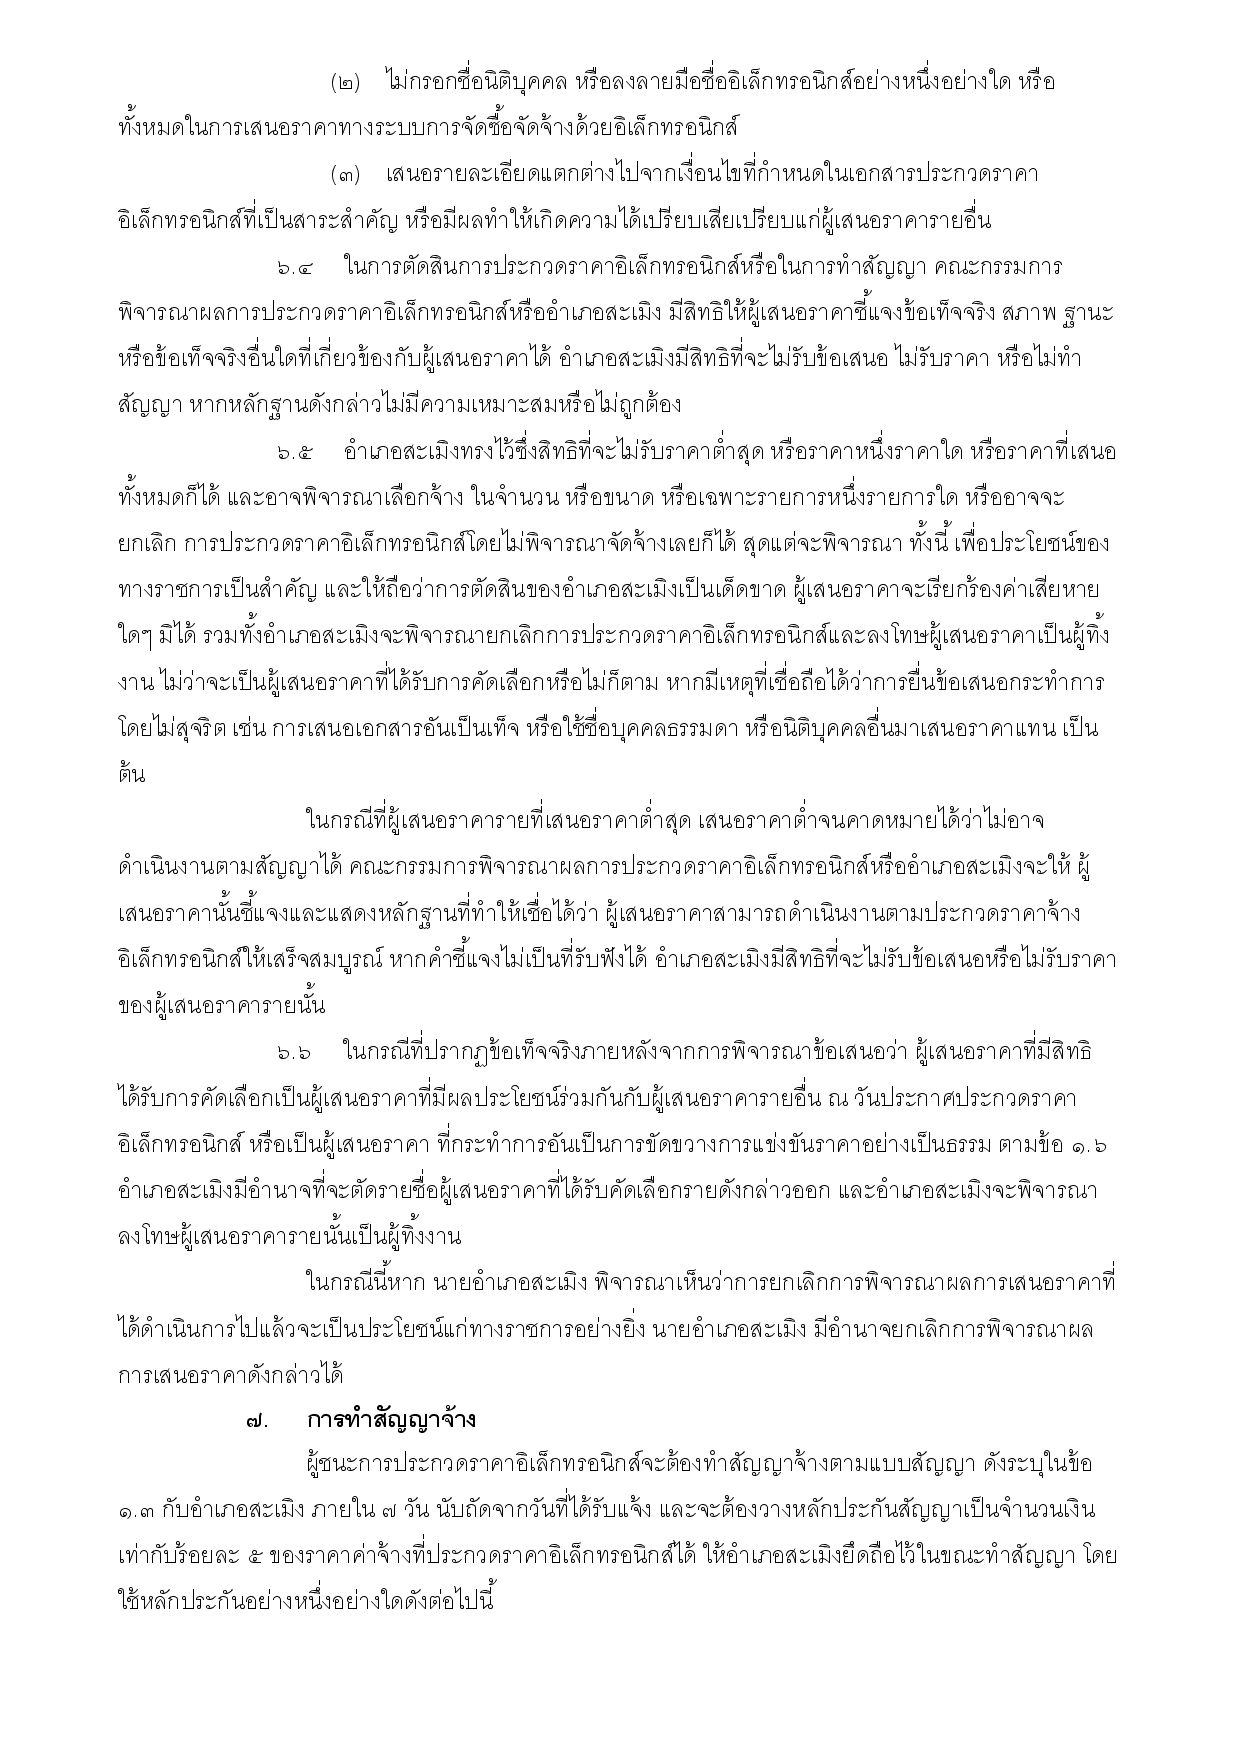 (๒) ไม่กรอกชื่อนิติบุคคล หรือลงลายมือชื่ออิเล็กทรอนิกส์อย่างหนึ่งอย่างใด หรือ
ทั้งหมดในการเสนอราคาทางระบบการจัดซื้อจัดจ้างด้วยอิเล็กทรอนิกส์
(๓) เสนอรายละเอียดแตกต่างไปจากเงื่อนไขที่กำหนดในเอกสารประกวดราคา
อิเล็กทรอนิกส์ที่เป็นสาระสำคัญ หรือมีผลทำให้เกิดความได้เปรียบเสียเปรียบแก่ผู้เสนอราคารายอื่น
๖.๔ ในการตัดสินการประกวดราคาอิเล็กทรอนิกส์หรือในการทำสัญญา คณะกรรมการ
พิจารณาผลการประกวดราคาอิเล็กทรอนิกส์หรืออำเภอสะเมิง มีสิทธิให้ผู้เสนอราคาชี้แจงข้อเท็จจริง สภาพ ฐานะ
หรือข้อเท็จจริงอื่นใดที่เกี่ยวข้องกับผู้เสนอราคาได้ อำเภอสะเมิงมีสิทธิที่จะไม่รับข้อเสนอ ไม่รับราคา หรือไม่ทำ
สัญญา หากหลักฐานดังกล่าวไม่มีความเหมาะสมหรือไม่ถูกต้อง
๖.๕ อำเภอสะเมิงทรงไว้ซึ่งสิทธิที่จะไม่รับราคาต่ำสุด หรือราคาหนึ่งราคาใด หรือราคาที่เสนอ
ทั้งหมดก็ได้ และอาจพิจารณาเลือกจ้าง ในจำนวน หรือขนาด หรือเฉพาะรายการหนึ่งรายการใด หรืออาจจะ
ยกเลิก การประกวดราคาอิเล็กทรอนิกส์โดยไม่พิจารณาจัดจ้างเลยก็ได้ สุดแต่จะพิจารณา ทั้งนี้ เพื่อประโยชน์ของ
ทางราชการเป็นสำคัญ และให้ถือว่าการตัดสินของอำเภอสะเมิงเป็นเด็ดขาด ผู้เสนอราคาจะเรียกร้องค่าเสียหาย
ใดๆ มิได้ รวมทั้งอำเภอสะเมิงจะพิจารณายกเลิกการประกวดราคาอิเล็กทรอนิกส์และลงโทษผู้เสนอราคาเป็นผู้ทิ้ง
งาน ไม่ว่าจะเป็นผู้เสนอราคาที่ได้รับการคัดเลือกหรือไม่ก็ตาม หากมีเหตุที่เชื่อถือได้ว่าการยื่นข้อเสนอกระทำการ
โดยไม่สุจริต เช่น การเสนอเอกสารอันเป็นเท็จ หรือใช้ชื่อบุคคลธรรมดา หรือนิติบุคคลอื่นมาเสนอราคาแทน เป็น
ต้น
ในกรณีที่ผู้เสนอราคารายที่เสนอราคาต่ำสุด เสนอราคาต่ำจนคาดหมายได้ว่าไม่อาจ
ดำเนินงานตามสัญญาได้ คณะกรรมการพิจารณาผลการประกวดราคาอิเล็กทรอนิกส์หรืออำเภอสะเมิงจะให้ ผู้
เสนอราคานั้นชี้แจงและแสดงหลักฐานที่ทำให้เชื่อได้ว่า ผู้เสนอราคาสามารถดำเนินงานตามประกวดราคาจ้าง
อิเล็กทรอนิกส์ให้เสร็จสมบูรณ์ หากคำชี้แจงไม่เป็นที่รับฟังได้ อำเภอสะเมิงมีสิทธิที่จะไม่รับข้อเสนอหรือไม่รับราคา
ของผู้เสนอราคารายนั้น
๖.๖ ในกรณีที่ปรากฏข้อเท็จจริงภายหลังจากการพิจารณาข้อเสนอว่า ผู้เสนอราคาที่มีสิทธิ
ได้รับการคัดเลือกเป็นผู้เสนอราคาที่มีผลประโยชน์ร่วมกันกับผู้เสนอราคารายอื่น ณ วันประกาศประกวดราคา
อิเล็กทรอนิกส์ หรือเป็นผู้เสนอราคา ที่กระทำการอันเป็นการขัดขวางการแข่งขันราคาอย่างเป็นธรรม ตามข้อ ๑.๖
อำเภอสะเมิงมีอำนาจที่จะตัดรายชื่อผู้เสนอราคาที่ได้รับคัดเลือกรายดังกล่าวออก และอำเภอสะเมิงจะพิจารณา
ลงโทษผู้เสนอราคารายนั้นเป็นผู้ทิ้งงาน
ในกรณีนี้หาก นายอำเภอสะเมิง พิจารณาเห็นว่าการยกเลิกการพิจารณาผลการเสนอราคาที่
ได้ดำเนินการไปแล้วจะเป็นประโยชน์แก่ทางราชการอย่างยิ่ง นายอำเภอสะเมิง มีอำนาจยกเลิกการพิจารณาผล
การเสนอราคาดังกล่าวได้
๗. การทำสัญญาจ้าง
ผู้ชนะการประกวดราคาอิเล็กทรอนิกส์จะต้องทำสัญญาจ้างตามแบบสัญญา ดังระบุในข้อ
๑.๓ กับอำเภอสะเมิง ภายใน ๗ วัน นับถัดจากวันที่ได้รับแจ้ง และจะต้องวางหลักประกันสัญญาเป็นจำนวนเงิน
เท่ากับร้อยละ ๕ ของราคาค่าจ้างที่ประกวดราคาอิเล็กทรอนิกส์ได้ ให้อำเภอสะเมิงยึดถือไว้ในขณะทำสัญญา โดย
ใช้หลักประกันอย่างหนึ่งอย่างใดดังต่อไปนี้